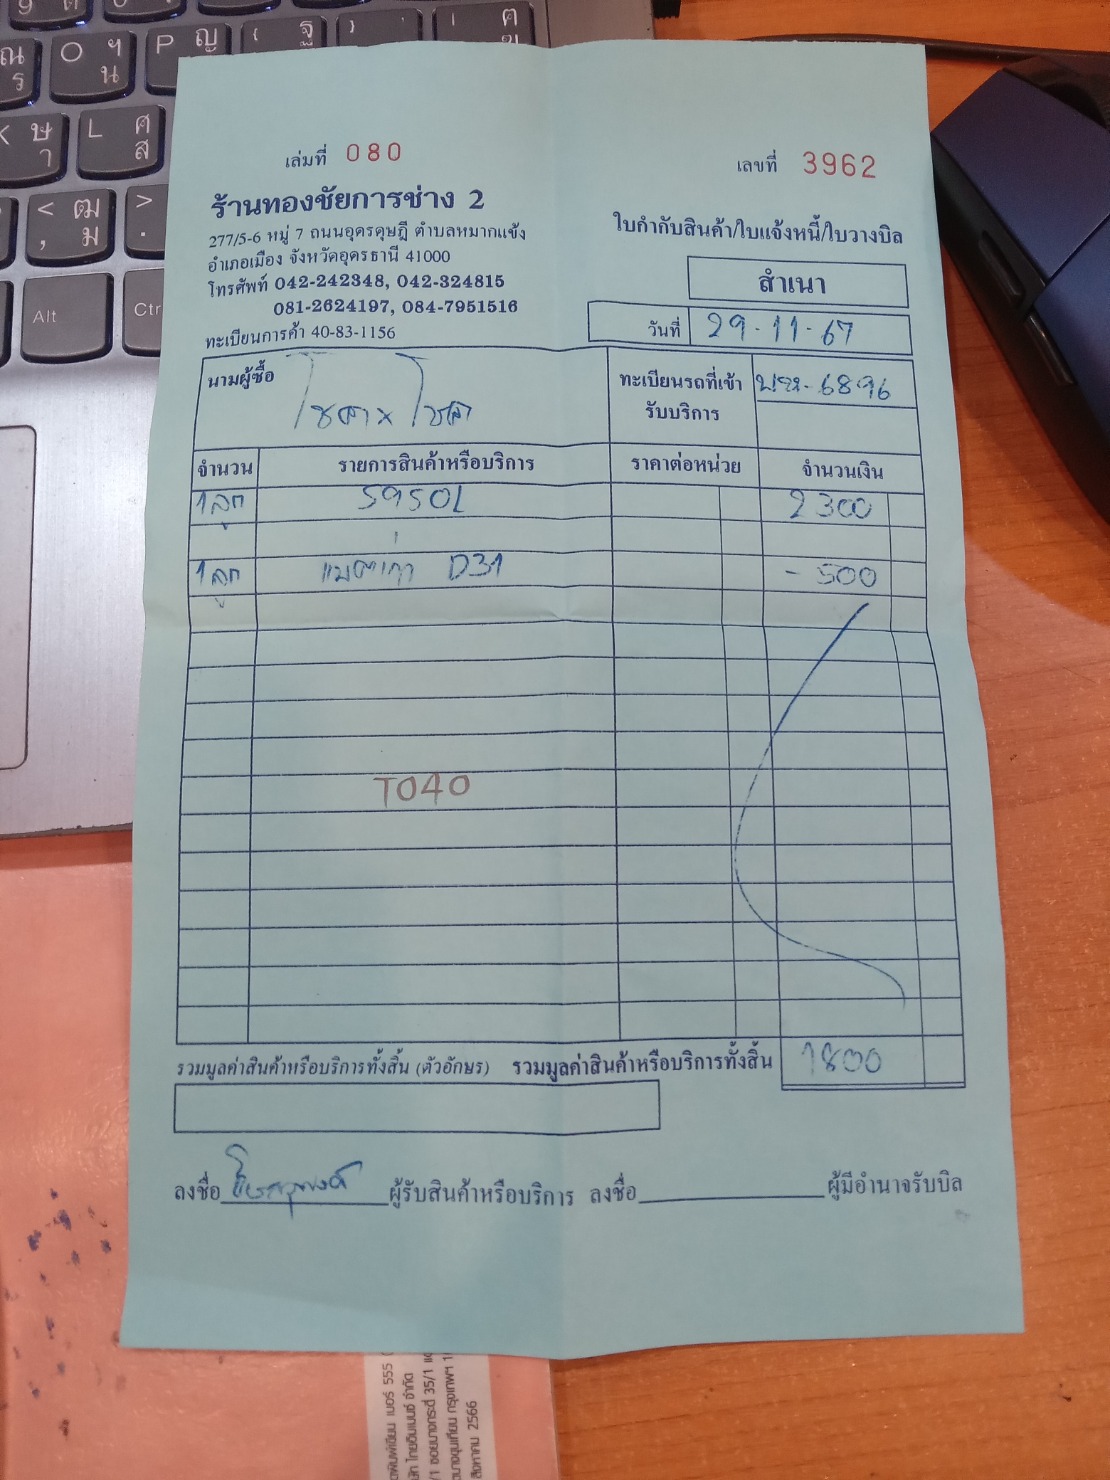 เล่มที่ 080
เลขที่ 3962
ร้านทองชัยการช่าง 2
277/5-6 หมู่ 7 ถนนอุดรดุษฎี ตำบลหมากแข้ง
อำเภอเมือง จังหวัดอุดรธานี 41000
โทรศัพท์ 042-242348, 042-324815
081-2624197, 084-7951516
ทะเบียนการค้า 40-83-1156
ใบกำกับสินค้า/ใบแจ้งหนี้/ใบวางบิล
สำเนา
วันที่ 29-11-67
นามผู้ซื้อ
ทะเบียนรถที่เข้า
รับบริการ
6896
จำนวน รายการสินค้าหรือบริการ ราคาต่อหน่วย จำนวนเงิน
1 ลูก 5950L 2300
1 ลูก แบตเก่า D31 - 500
T040
รวมมูลค่าสินค้าหรือบริการทั้งสิ้น (ตัวอักษร) รวมมูลค่าสินค้าหรือบริการทั้งสิ้น 1800
ลงชื่อ ผู้รับสินค้าหรือบริการ ลงชื่อ ผู้มีอำนาจรับบิล
O ฯ น
P ญ
L ศ ส
ษ า
< ฒ , ม
> .
Alt
Ctr
สิงหาคม 2566